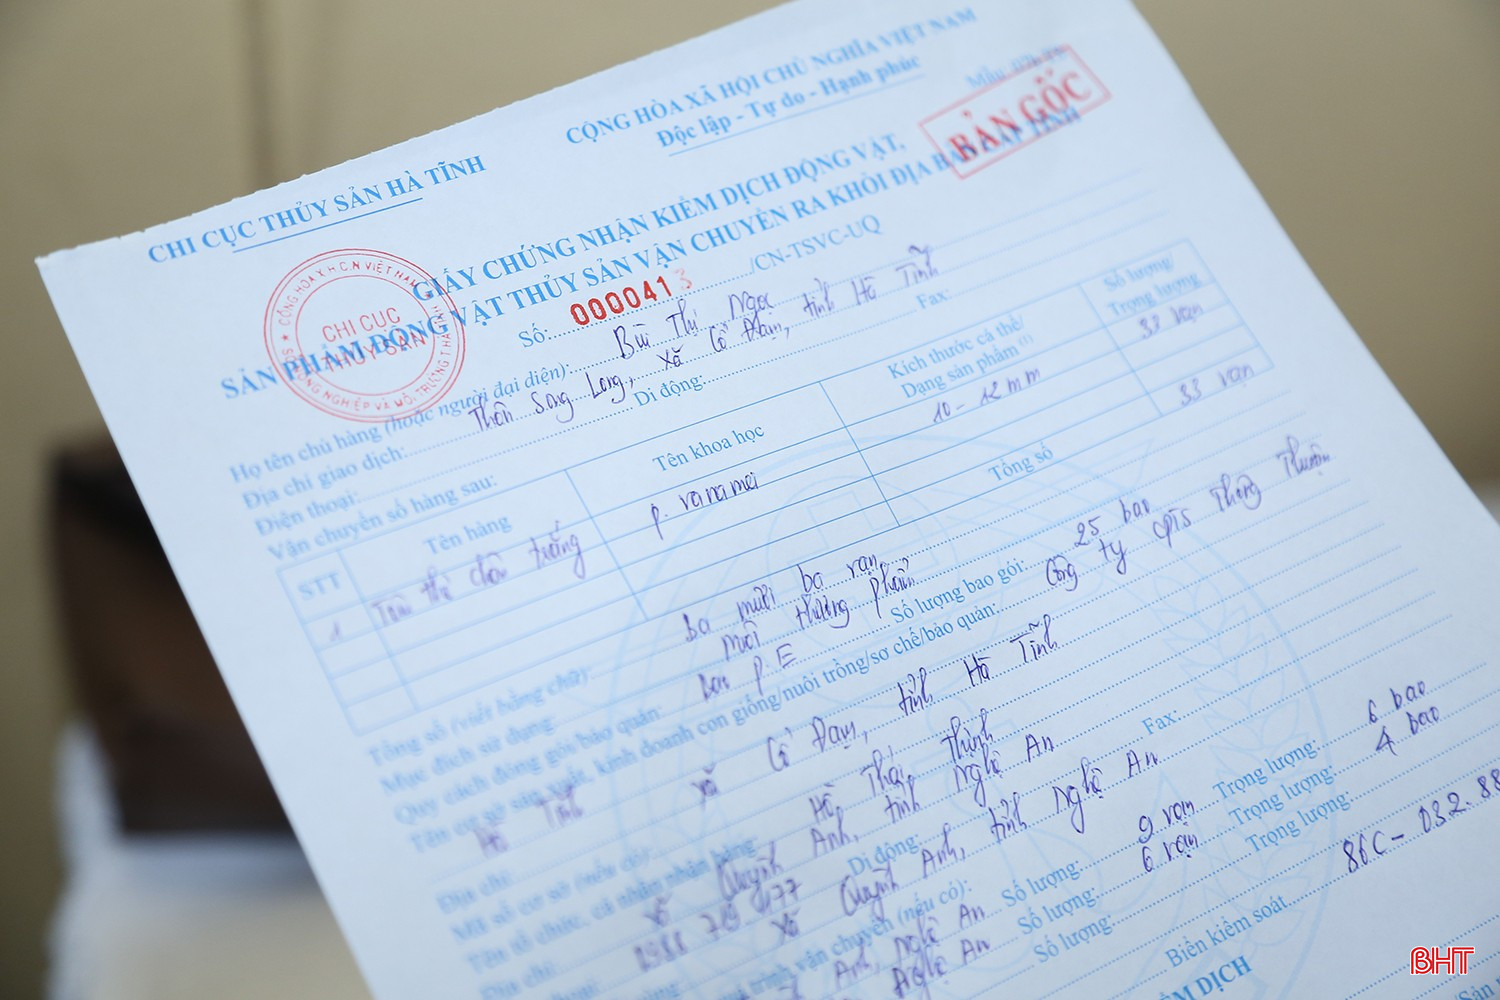 CHI CỤC THỦY SẢN HÀ TĨNH
CỘNG HÒA XÃ HỘI CHỦ NGHĨA VIỆT NAM
Độc lập - Tự do - Hạnh phúc
BẢN GỐC
GIẤY CHỨNG NHẬN KIỂM DỊCH ĐỘNG VẬT,
SẢN PHẨM ĐỘNG VẬT THỦY SẢN VẬN CHUYỂN RA KHỎI ĐỊA BÀN CẤP TỈNH
CHI CỤC
THỦY SẢN
Số: 000041 /CN-TSVC-UQ
Họ tên chủ hàng (hoặc người đại diện): Bùi Thị Ngọc
Địa chỉ giao dịch: Thôn Song Long, xã Cổ Đạm, tỉnh Hà Tĩnh
Điện thoại: Di động: Fax:
Vận chuyển số hàng sau:
STT Tên hàng Tên khoa học Kích thước cá thể/ Dạng sản phẩm (1) Số lượng/ Trọng lượng
1 Tôm thẻ chân trắng P. vanamei 10 - 12 mm 33 vạn
Tổng số 33 vạn
Tổng số (viết bằng chữ): Ba mươi ba vạn
Mục đích sử dụng: Nuôi thương phẩm
Quy cách đóng gói/bảo quản: Bao P.E Số lượng bao gói: 25 bao
Tên cơ sở sản xuất, kinh doanh con giống/nuôi trồng/sơ chế/bảo quản: Công ty Thông Thuận
Hà Tĩnh
Địa chỉ: xã Cổ Đạm, tỉnh Hà Tĩnh
Mã số cơ sở (nếu có):
Tên tổ chức, cá nhân nhận hàng: Hồ Thái Thịnh
Địa chỉ: xã Quỳnh Anh, tỉnh Nghệ An
Di động: Fax:
xã Quỳnh Anh, tỉnh Nghệ An
vận chuyển (nếu có):
Anh, Nghệ An Số lượng: 9 vạn Trọng lượng: 6 bao
Nghệ An Số lượng: 6 vạn Trọng lượng: 4 bao
Số lượng: Trọng lượng:
Biển kiểm soát: 86C - 032.88
DỊCH
BHT